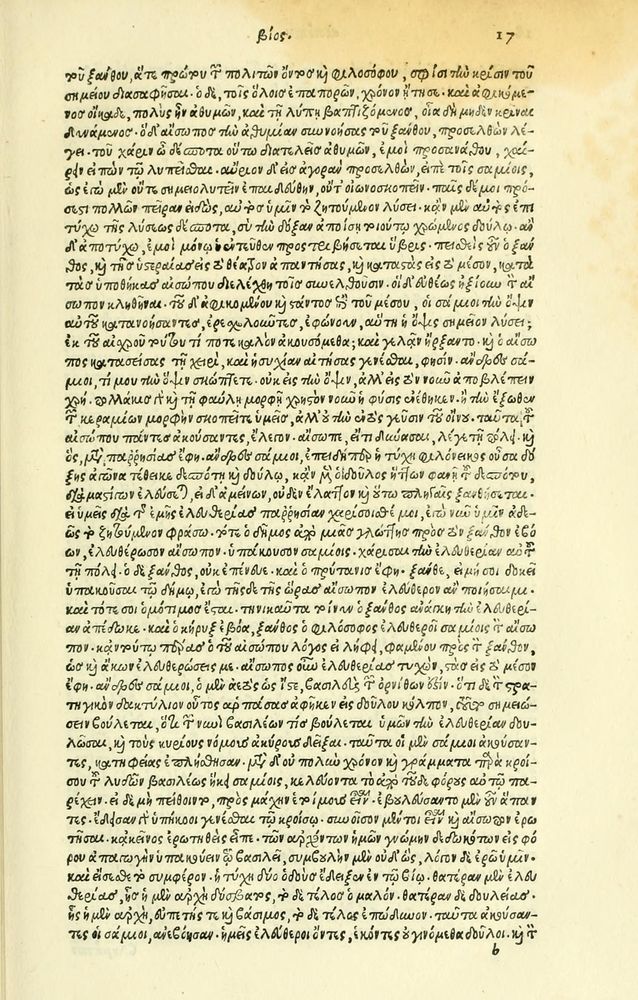 βίος. 17
τοῦ ξάνθου, ἅτε πρώτου τῶν πολιτῶν ὄντος καὶ φιλοσόφου, σφίσι τὴν κρίσιν τοῦ
σημείου διασαφῆσαι. ὁ δὲ, τοῖς ὅλοις ἐπαπορῶν, χρόνον ᾔτησε. καὶ ἀφικόμε-
νος οἴκαδε, πολὺς ἦν ἀθυμῶν, καὶ τῇ λύπῃ βαπτιζόμενος, οἷα δὴ μηδὲν κρῖναι
δυνάμενος. ὁ δ' αἴσωπος τὴν ἀθυμίαν συννοήσας τοῦ ξάνθου, προσελθὼν λέ-
γει. τοῦ χάριν ὦ δέσποτα οὕτω διατελεῖς ἀθυμῶν, ἐμοὶ προσανάθου, χαί-
ρειν εἰπὼν τῷ λυπεῖσθαι. αὔριον δ' εἰς ἀγορὰν προσελθὼν, εἰπὲ τοῖς σαμίοις,
ὡς ἐγὼ μὲν οὔτε σημειολυτεῖν ἐπαιδεύθην, οὔτ' οἰωνοσκοπεῖν. παῖς δέ μοι πρό-
σεστι πολλῶν πεῖραν εἰδὼς, αὐτὸς ὑμῖν τὸ ζητούμενον λύσει. κἂν μὲν αὐτὸς ἐπι
τύχω τῆς λύσεως δέσποτα, σὺ τὴν δόξαν ἀποίσῃ τοιούτῳ χρώμενος δούλῳ. ἂν
δ' ἀποτύχω, ἐμοὶ μόνῳ ἐντεῦθεν προστριβήσεται ὕβρις. πεισθεὶς οὖν ὁ ξάν
θος, καὶ τῆς ὑστεραίας εἰς τὸ θέατρον ἀπαντήσας, καὶ καταστὰς εἰς τὸ μέσον, κατὰ
τὰς ὑποθήκας αἰσώπου διελέχθη τοῖς συνελθοῦσιν. οἱ δ' εὐθέως ἠξίουν τὸν αἴ
σωπον κληθῆναι. τοῦ δ' ἀφικομένου καὶ στάντος ἐπὶ τοῦ μέσου, οἱ σάμιοι τὴν ὄψιν
αὐτοῦ κατανοήσαντες, ἐρεσχελοῦντες, ἐφώνουν, αὕτη ἡ ὄψις σημεῖον λύσει;
ἐκ τοῦ αἰσχροῦ τούτου τί ποτε καλὸν ἀκουσόμεθα; καὶ γελᾶν ἤρξαντο. καὶ ὁ αἴσω
πος κατασείσας τῇ χειρὶ, καὶ ἡσυχίαν αἰτήσας γενέσθαι, φησίν. ἄνδρες σά-
μιοι, τί μου τὴν ὄψιν σκώπτετε. οὐκ εἰς τὴν ὄψιν, ἀλλ' εἰς τὸν νοῦν ἀποβλέπειν
χρή. πολλάκις γὰρ καὶ τῇ φαύλῃ μορφῇ χρηστὸν νοῦν ἡ φύσις ἐνέθηκεν. ἢ τὴν ἔξωθεν
τῶν κεραμίων μορφὴν σκοπεῖτε ὑμεῖς, ἀλλ' οὐ τὴν ἐντὸς γεῦσιν τοῦ οἴνου. ταῦτα τοῦ
αἰσώπου πάντες ἀκούσαντες, ἔλεγον. αἴσωπε, εἴ τι δύνασαι, λέγε τῇ πόλει. καὶ
ὃς, μετὰ παρρησίας ἔφη. ἄνδρες σάμιοι, ἐπειδήπερ ἡ τύχη φιλόνεικος οὖσα δό
ξης ἀγῶνα τέθεικε δεσπότῃ καὶ δούλῳ, κἂν μὲν ὁ δοῦλος ἥττων φανῇ τοῦ δεσπότου,
εἰ δ' ἀμείνων, οὐδὲν ἔλαττον καὶ οὕτω πληγαῖς ξανθήσεται.
εἰ ὑμεῖς διὰ τῆς ἐλευθερίας παρρησίαν χαρίσοισθέ μοι, ἐγὼ νῦν ὑμῖν ἀδε-
ῶς τὸ ζητούμενον φράσω. τότε ὁ δῆμος ἀπὸ μιᾶς γλώττης πρὸς τὸν ξάνθον ἐβό
ων, ἐλευθέρωσον αἴσωπον. ὑπάκουσον σαμίοις. χάρισαι τὴν ἐλευθερίαν αὐτοῦ
τῇ πόλει. ὁ δὲ ξάνθος, οὐκ ἐπένευε. καὶ ὁ πρύτανις ἔφη. ξάνθε, εἰ μή σοι δοκεῖ
ὑπακοῦσαι τῷ δήμῳ, ἐγὼ τῆσδε τῆς ὥρας αἴσωπον ἐλεύθερον ἂν ποιήσαιμι.
καὶ τότε σοι ὁμότιμος ἔσται. τηνικαῦτα τοίνυν ὁ ξάνθος ἀνάγκῃ τὴν ἐλευθερί-
αν ἀπέδωκε. καὶ ὁ κῆρυξ ἐβόα, ξάνθος ὁ φιλόσοφος ἐλευθεροῖ σαμίοις τὸν αἴσω
πον. κἀν τούτῳ πέρας ὁ τοῦ αἰσώπου λόγος εἰλήφει, φαμένου πρὸς τὸν ξάνθον,
ὡς καὶ ἄκων ἐλευθερώσεις με. αἴσωπος οὖν ἐλευθερίας τυχὼν, στὰς εἰς τὸ μέσον
ἔφη. ἄνδρες σάμιοι, ὁ μὲν ἀετὸς ὡς ἴστε, βασιλεὺς τῶν ὀρνίθων ἐστίν. ὅτι δὲ τὸν στρα-
τηγικὸν δακτύλιον οὗτος ἁρπάσας ἀφῆκεν εἰς δούλου κόλπον, σημειώ-
σειν βούλεται, ὅτι τῶν νῦν βασιλέων τις βούλεται ὑμῶν τὴν ἐλευθερίαν δου-
λῶσαι, καὶ τοὺς κυρίους νόμους ἀκύρους δεῖξαι. ταῦτα οἱ μὲν σάμιοι ἀκούσαν-
τες, κατηφείας ἐπλήσθησαν. μετὰ δ' οὐ πολὺν χρόνον καὶ γράμματα παρὰ κροί-
σου τοῦ λυδῶν βασιλέως ἧκε σαμίοις, κελεύοντα τὸ ἀπὸ τοῦδε φόρους αὐτῷ πα-
ρέχειν. εἰ δὲ μὴ πείθοιντο, πρὸς μάχην ἑτοίμους εἶναι. ἐβουλεύσαντο μὲν οὖν ἅπαν
τες. ἔδεισαν γὰρ ὑπήκοοι γενέσθαι τῷ κροίσῳ. συνοῖσον μέντοι εἶναι καὶ αἴσωπον ἐρω
τῆσαι. κἀκεῖνος ἐρωτηθεὶς εἶπε. τῶν ἀρχόντων ἡμῶν γνώμην δεδωκότων εἰς φό
ρου ἀπαγωγὴν ὑπακούειν τῷ βασιλεῖ, συμβουλὴν μὲν οὐ δίδωμι, λόγον δὲ ἐρῶ ὑμῖν.
καὶ εἴσεσθε τὸ συμφέρον. ἡ τύχη δύο ὁδοὺς ἔδειξεν ἐν τῷ βίῳ. θατέραν μὲν ἐλευ
θερίας, ἧς ἡ μὲν ἀρχὴ δύσβατος, τὸ δὲ τέλος ὁμαλόν. θατέραν δὲ δουλείας.
ἧς ἡ μὲν ἀρχὴ, εὐπετής τε καὶ βάσιμος, τὸ δὲ τέλος ἐπώδυνον. ταῦτα ἀκούσαν-
τες οἱ σάμιοι, ἀνεβόησαν. ἡμεῖς ἐλεύθεροι ὄντες, ἑκόντες οὐ γινόμεθα δοῦλοι. καὶ τὸν
b